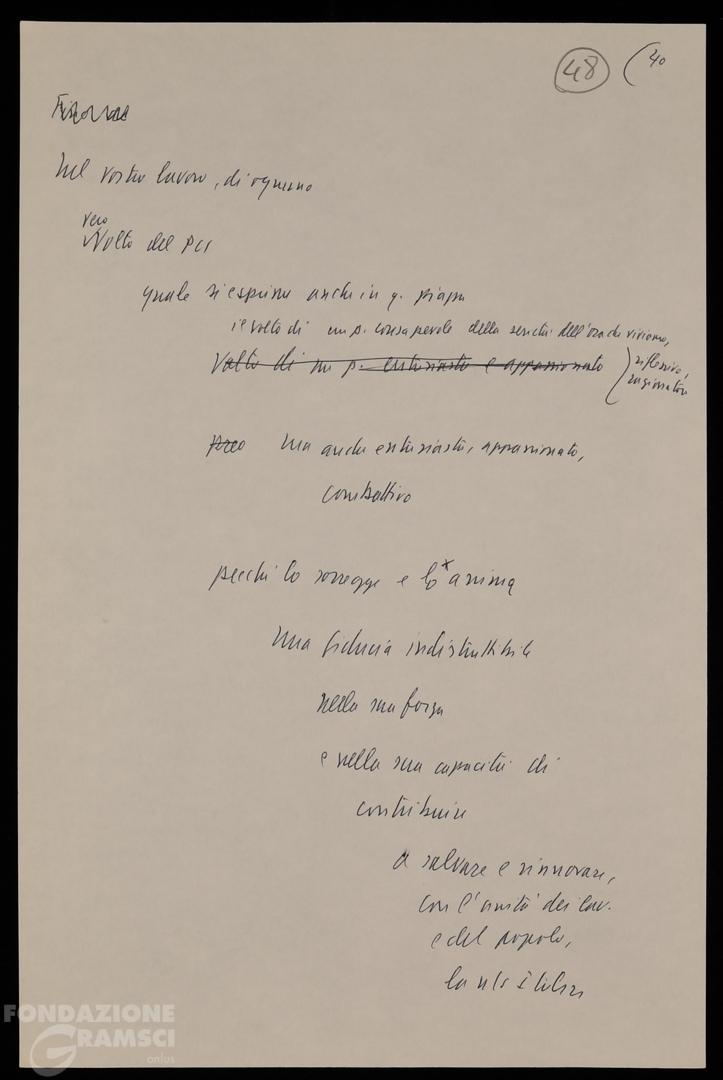 48 (40
Nel vostro lavoro, di ognuno
vero
Volto del PCI
quale si esprime anche in q. piazza
il volto di un p. consapevole della serietà dell'ora che viviamo,
Volto di un p. entusiasta e appassionato
riflessivo,
ragionatore
Ma anche entusiasta, appassionato,
combattivo
perché lo sorregge e lo anima
una fiducia indistruttibile
nella sua forza
e nella sua capacità di
contribuire
a salvare e rinnovare,
con l'unità dei lav.
e del popolo,
la
FONDAZIONE
GRAMSCI
onlus